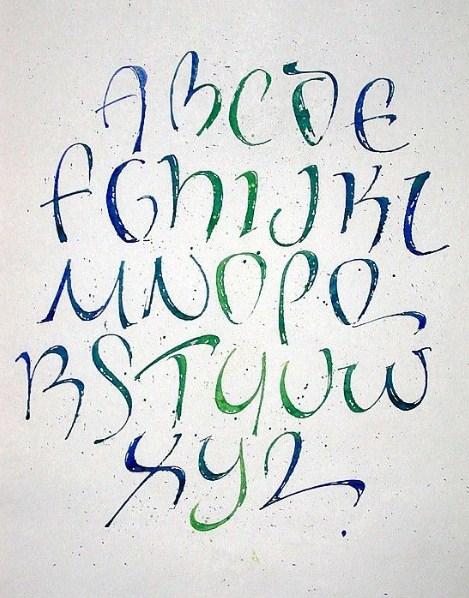 ABCDE
FGHIJKL
MNOPQ
RSTUVW
XYZ